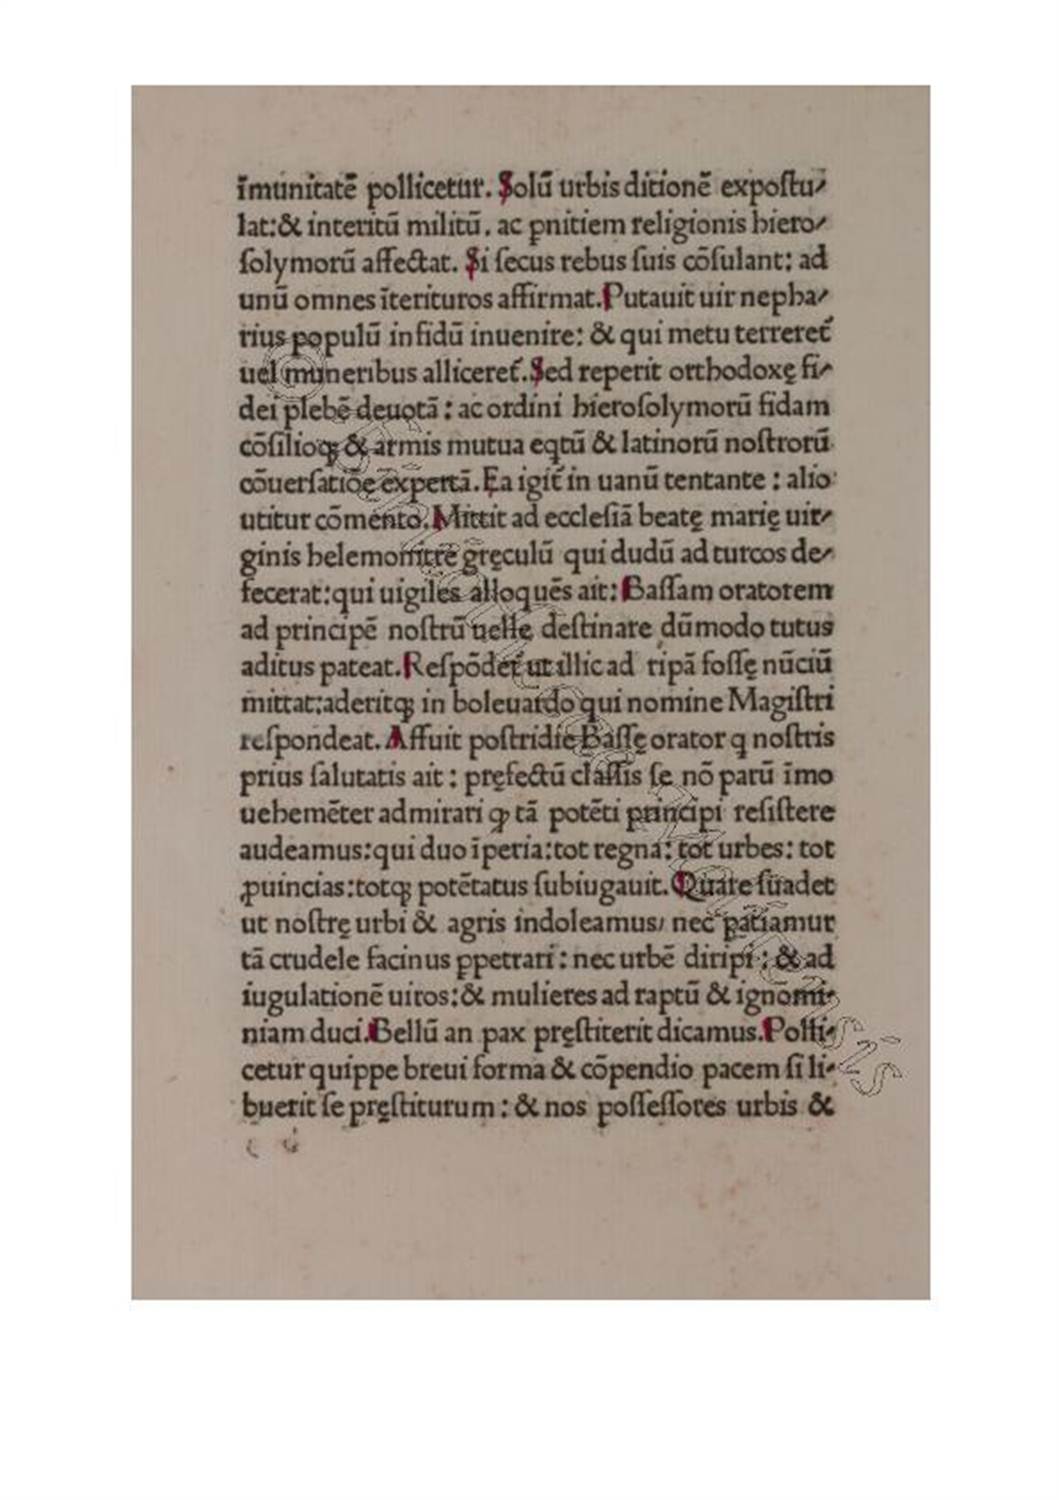 īmunitatē pollicetur. Solū urbis ditionē expoſtu⸗
lat:& interitū militū. ac ꝑnitiem religionis hiero⸗
ſolymorū affectat. Si ſecus rebus ſuis cōſulant: ad
unū omnes īterituros affirmat. Putauit uir nepha⸗
rius populū infidū inuenire: & qui metu terreret᷑
uel muneribus alliceret᷑. Sed reperit orthodoxę fi⸗
dei plebē deuotā: ac ordini hieroſolymorū fidam
cōſilioqꝫ & armis mutua eqtū & latinorū noſtrorū
cōuerſatiōe expertā. Ea igit᷑ in uanū tentante: alio
utitur cōmento. Mittit ad eccleſiā beatę marię uir⸗
ginis helemonitrē gręculū qui dudū ad turcos de⸗
fecerat: qui uigiles alloquēs ait: Baſſam oratorem
ad principē noſtrū uelle deſtinare dūmodo tutus
aditus pateat. Reſpōdet᷑ ut illic ad ripā foſſę nūciū
mittat: aderitqꝫ in boleuardo qui nomine Magiſtri
reſpondeat. Affuit poſtridie Baſſę orator q noſtris
prius ſalutatis ait: pręfectū claſſis ſe nō parū īmo
uehemēter admirari ꝙ tā potēti principi reſiſtere
audeamus: qui duo īperia: tot regna: tot urbes: tot
ꝓuincias: totqꝫ potētatus ſubiugauit. Quare ſuadet
ut noſtrę urbi & agris indoleamus/ nec patiamur
tā crudele facinus ꝑpetrari: nec urbē diripi: & ad
iugulationē uiros: & mulieres ad raptū & ignomi⸗
niam duci. Bellū an pax pręſtiterit dicamus. Polli⸗
cetur quippe breui forma & cōpendio pacem ſi li⸗
buerit ſe pręſtiturum: & nos poſſeſſores urbis &